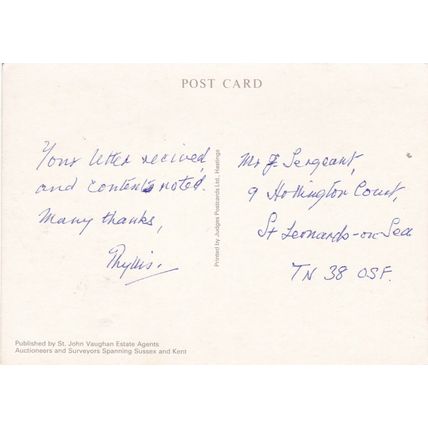 POST CARD
Your letter received
and contents noted.
Many thanks,
Phyllis.
Printed by Judges Postcards Ltd., Hastings
Mr J. Sergeant,
9 Hollington Court,
St Leonards-on-Sea
TN 38 OSF.
Published by St. John Vaughan Estate Agents
Auctioneers and Surveyors Spanning Sussex and Kent